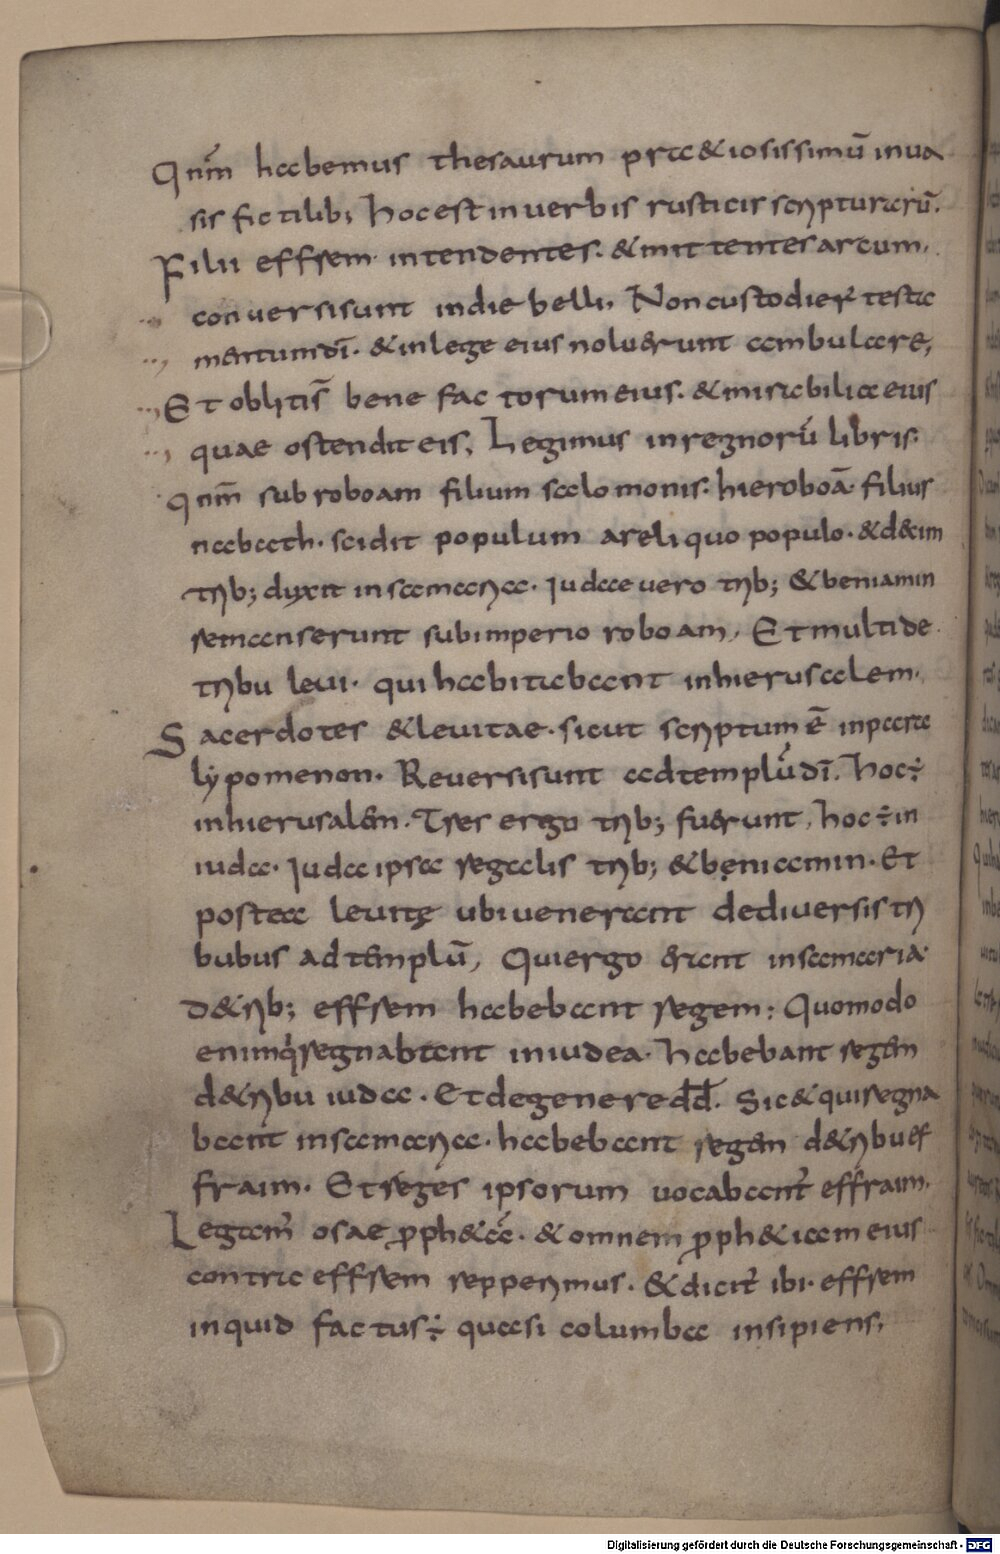 Qnm̄ habemus thesaurum pra&iosissimū inua
sis fictilib; hocest inuerbis rusticis scripturarū.
Filii effrem intendentes. &mittentes arcum.
conuersisunt indie belli, Noncustodier̄ testa
mentumdī. &inlege eius noluerunt ambulare,
Et oblitis̄ bene factorumeius. &mirabilia eius
quae ostendit eis, Legimus inregnorū libris.
qnm̄ sub roboam filium salomonis. hieroboā filius
nabath. scidit populum areliquo populo. &d&im
trib; duxit insamaria. Iudae uero trib; &beniamin
remanserunt subimperio roboam, Et multi de
tribu leui. qui habitabant inhierusalem.
Sacerdotes &leuitae. sicut scriptum ē inpara
lypomenon. Reuersisunt adtemplū dī. hoc÷
inhierusalem. Tres ergo trib; fuerunt, hoc÷in
iuda. Iuda ipsa regalis trib; &beniamin. Et
postea leuitę ubiuenerant dediuersis tri
bubus ad templū, Qui ergo erant insamaria
d&rib; effrem habebant regem: Quomodo
enimq̇regnabant iniudea. habebant regem
d&ribu iuda. Et degenere dd̄. Sic&quiregna
bant insamaria. habebant regem d&ribu ef
fraim. Et reges ipsorum uocabant̄ effraim.
Legam̄ osae proph&ā. &omnem proph&iam eius
contra effrem repperimus. &dicit̄ ibi. effrem
inquid factus÷ quasi columba insipiens,
Digitalisierung gefördert durch die Deutsche Forschungsgemeinschaft - DFG